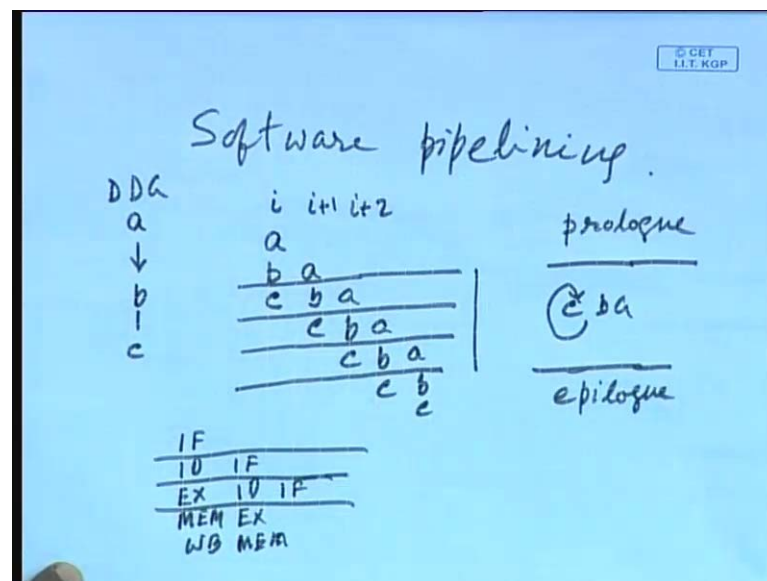 © CET
I.I.T. KGP
Software pipelining.
DDG
a
b
c
i i+1 i+2
a
b a
c b a
c b a
c b a
c b
c
prologue
c b a
epilogue
IF
ID IF
EX ID IF
MEM EX
WB MEM